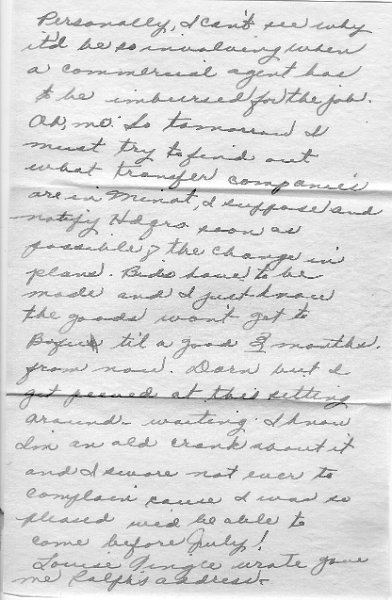 Personally, I can't see why
it'd be so involving when
a commercial agent has
to be imbursed for the job.
Oh, me. So tomorrow I
must try to find out
what transfer companies
are in Minot, I suppose and
notify Hdqrs soon as
possible of the change in
plans. Bids have to be
made and I just know
the goods won't get to
til a good 3 months.
from now. Darn but I
get peeved at this sitting
around - waiting. I know
I'm an old crank about it
and I swore not ever to
complain cause I was so
pleased we'd be able to
come before July!
Louise Pingle wrote gave
me Ralph's address.